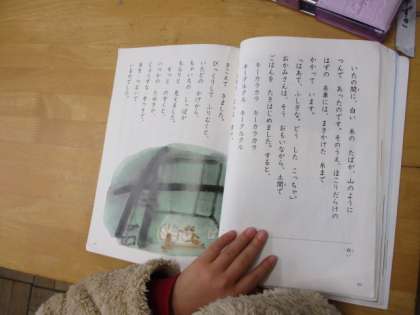 いたの間に、白い 糸の たばが、山のように
つんで あったのです。そのうえ、ほこりだらけの
はずの 糸車には、まきかけた 糸まで
かかって います。
「はあて、ふしぎな。どう した こっちゃ。」
おかみさんは、そう おもいながら、土間で
ごはんを たきはじめました。すると、
キーカラカラ キーカラカラ
キークルクル キークルクル
きこえて きました。
びっくりして ふりむくと、
いたどの かげから、
ちゃいろの しっぽが
ちらりと 見えました。
そっと のぞくと、
いつかの たぬきが、
じょうずな 手つきで、
いるのでした。